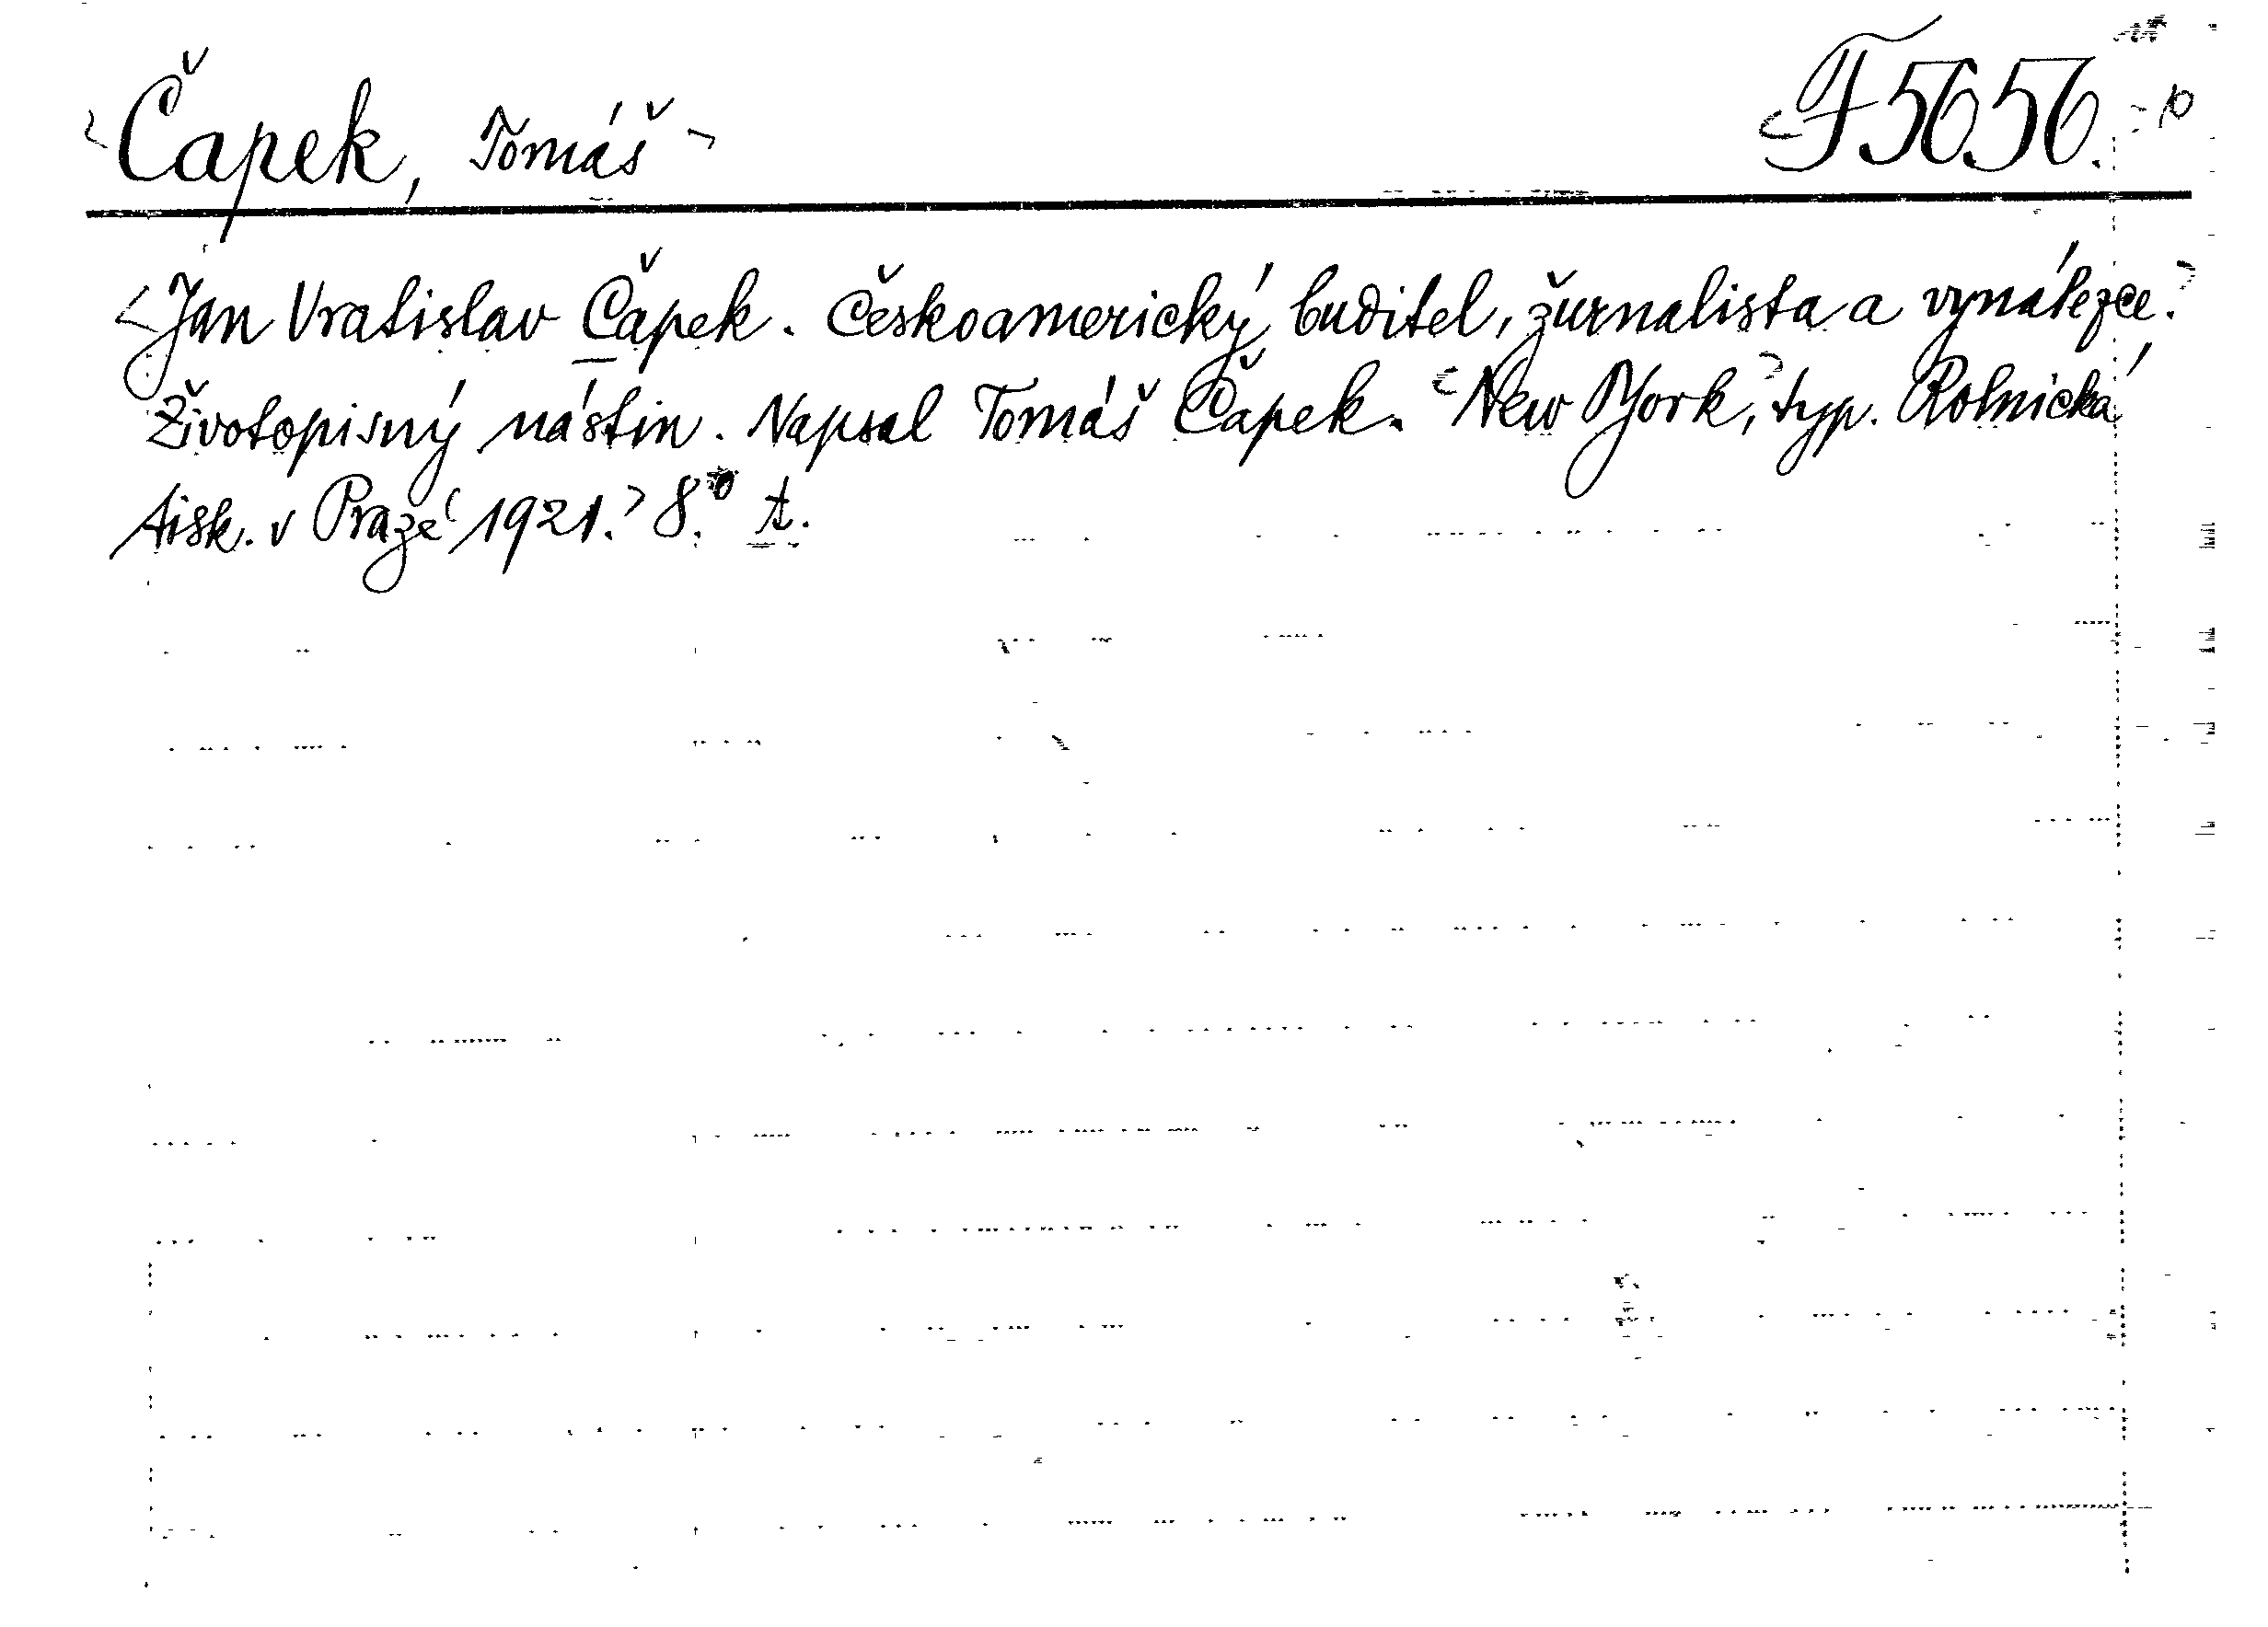 Čapek, Tomáš F 5656.
Jan Vratislav Čapek. Českoamerický buditel, žurnalista a vynálezce.
Životopisný nástin. Napsal Tomáš Čapek. New York, typ. Rolnická
tisk. v Praze 1921. 8.° t.